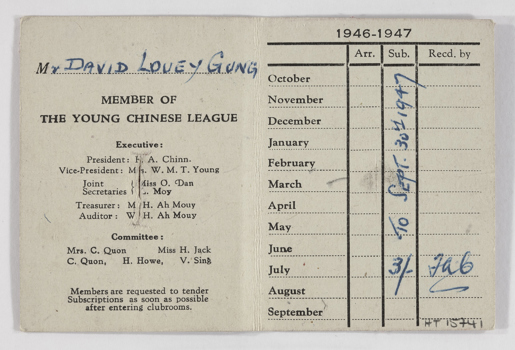 Mr DAVID LOUEY GUNG
MEMBER OF
THE YOUNG CHINESE LEAGUE
Executive:
President: A. Chinn.
Vice-President: W. M. T. Young
Joint Secretaries Miss O. Dan
Moy
Treasurer: H. Ah Mouy
Auditor: W H. Ah Mouy
Committee:
Mrs. C. Quon Miss H. Jack
C. Quon, H. Howe, V. Sing
Members are requested to tender
Subscriptions as soon as possible
after entering clubrooms.
1946-1947
Arr. Sub. Recd. by
October
November
December
January
February
March
April
May
June
July 3/-
August
September
TO SEPT. 30th 1947
HT 15741